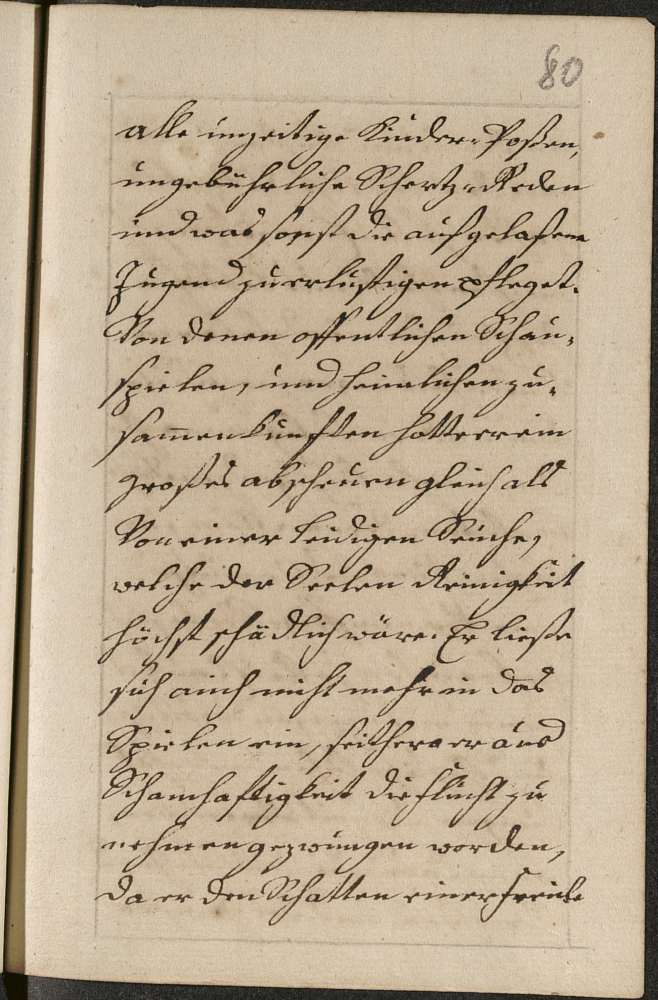 80
alle unzeitige Kinder-Poßen,
ungebührliche Schertz-Reden
und was sonst die außgelaßene
Jugend zu erlustigen pfleget.
Von denen offentlichen Schau-
spielen, und heimlichen zu-
sam̅enkunfften hatte er ein
großes abscheuen gleich als
Von einer leidigen Seuche,
welche der Seelen Reinigkeit
höchst schädlich wäre. Er ließe
sich auch nicht mehr in das
Spielen ein, seithero er aus
Schamhafftigkeit die flucht zu
nehmen gezwungen worden,
da er den Schatten einer